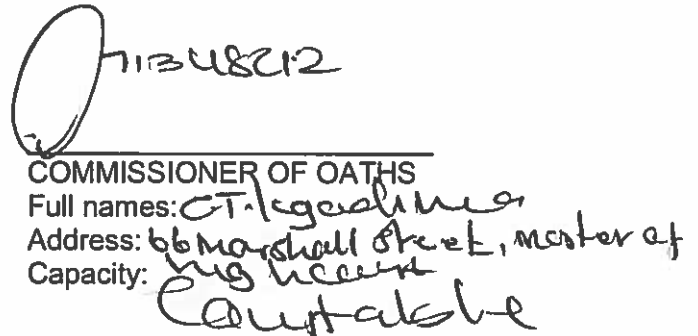 71348212
COMMISSIONER OF OATHS
Full names: CT. Kgadima
Address: 66 Marshall Street, master of
Capacity: high court
Constable